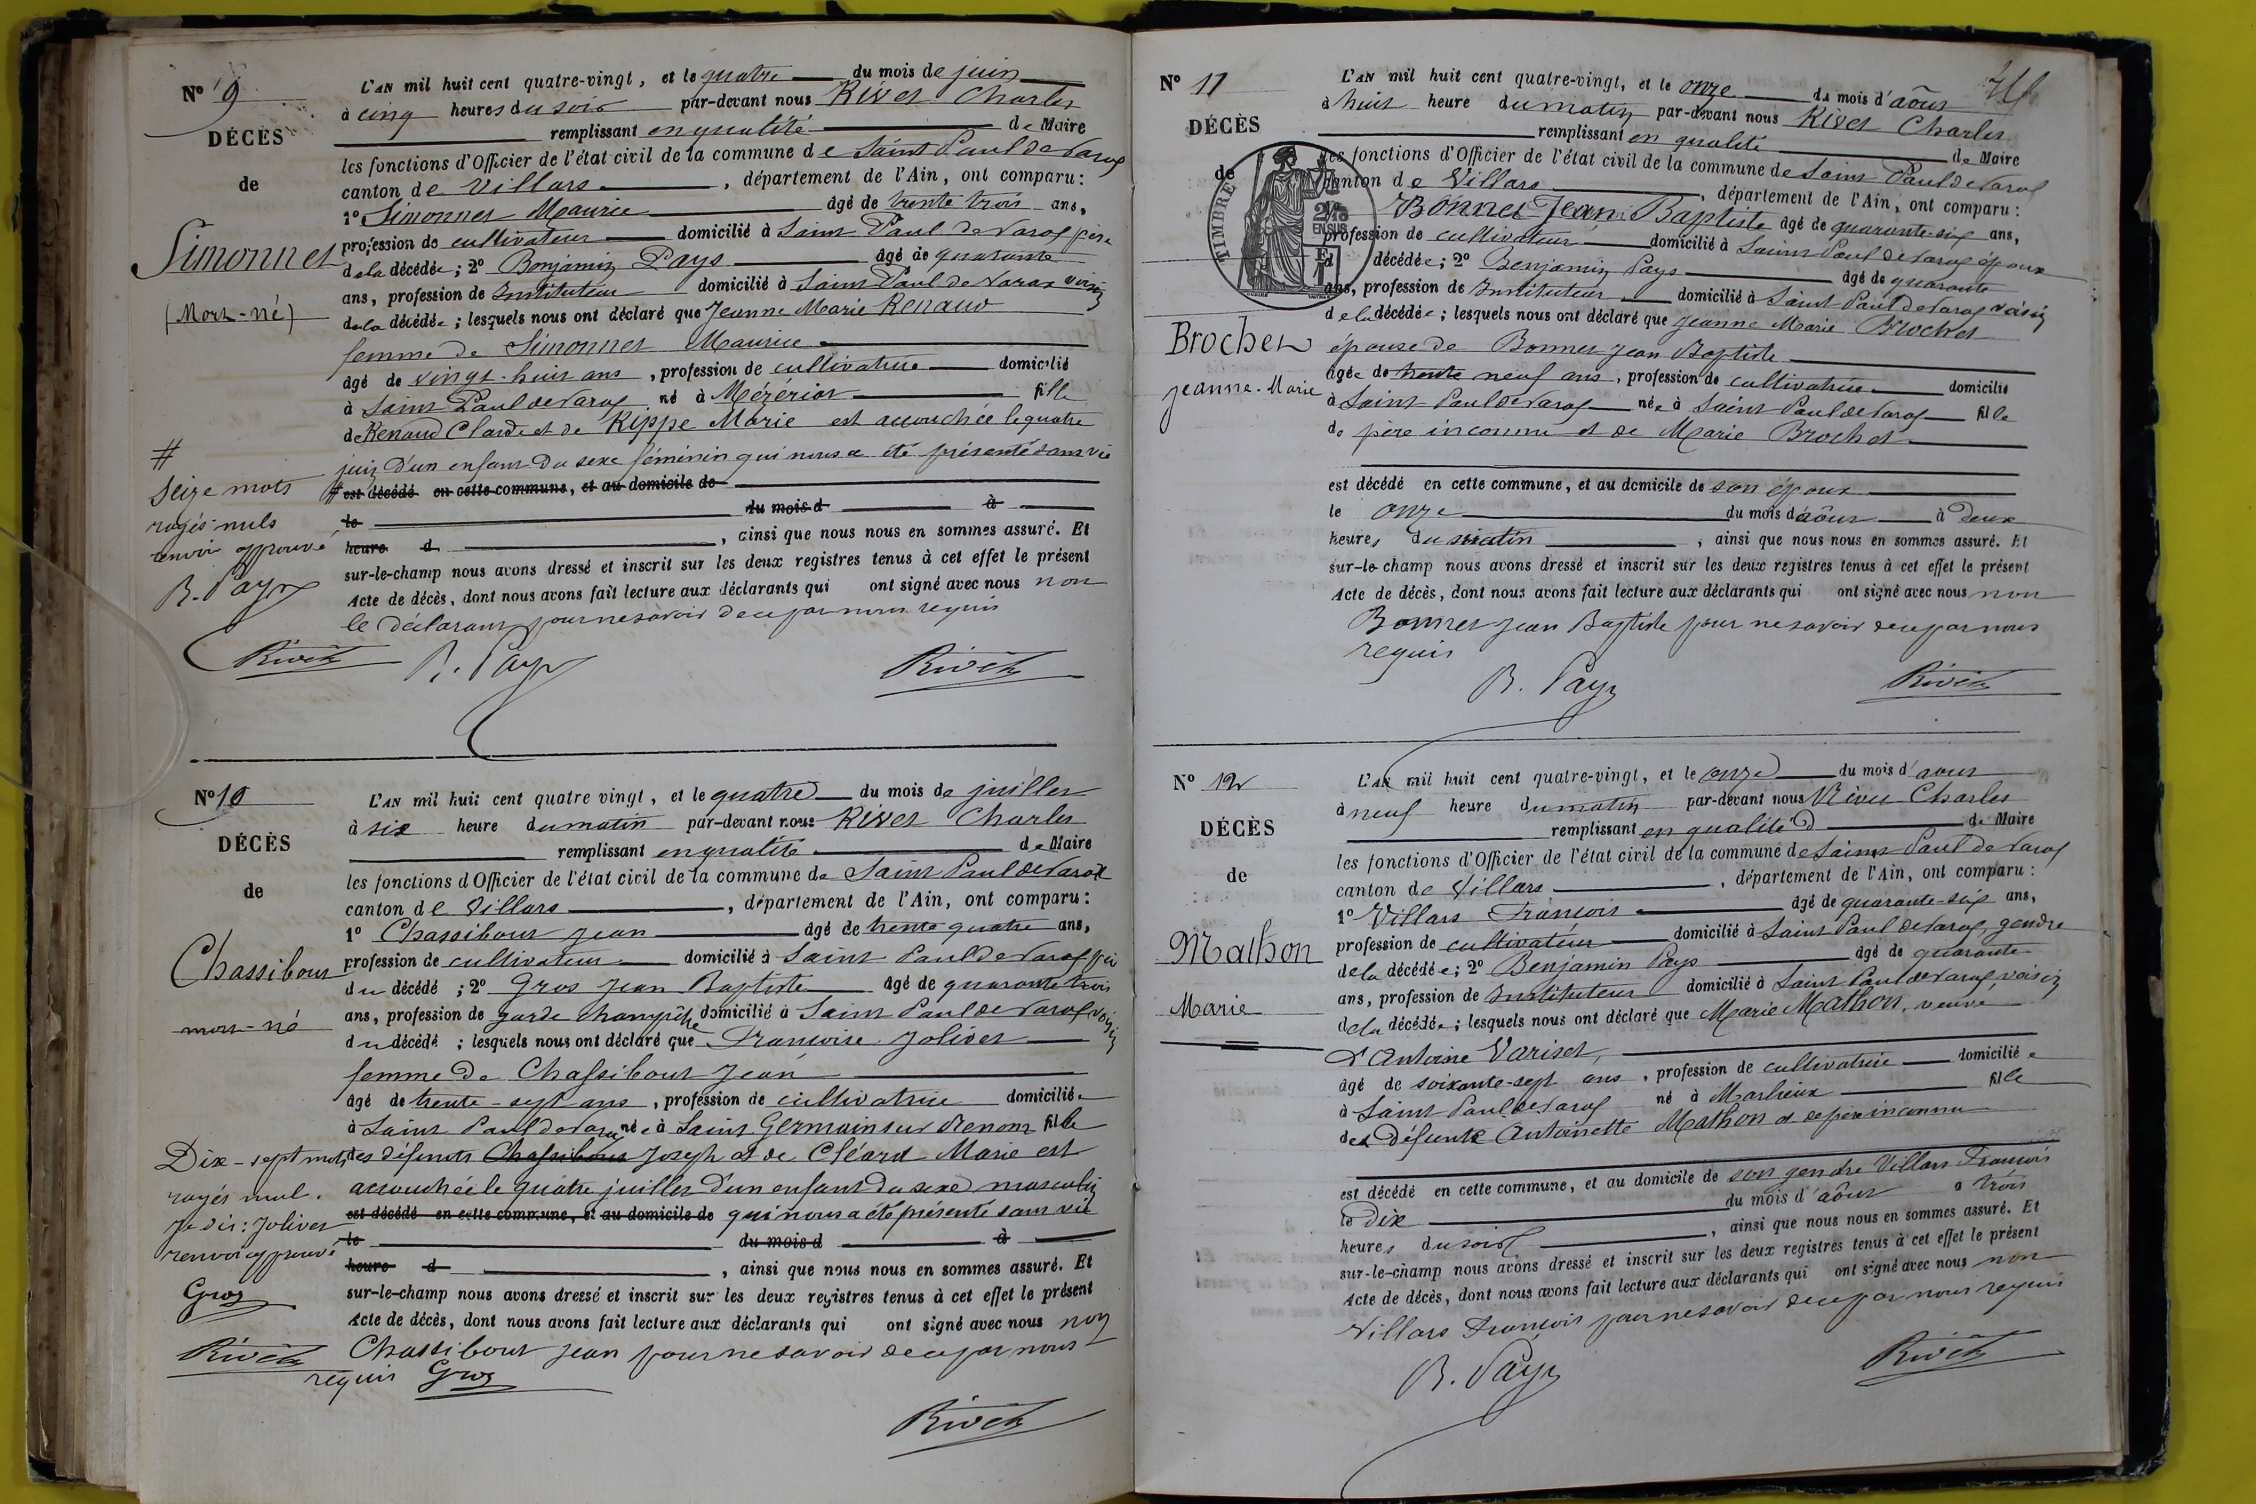 N° 9
DÉCÈS
de
Simonnet
(Mort-né)
L'AN mil huit cent quatre-vingt, et le quatre du mois de juin
à cinq heures du soir par-devant nous Rivet Charles
remplissant en qualité de Maire
les fonctions d'Officier de l'état civil de la commune de Saint Paul de Varax
canton de Villars, département de l'Ain, ont comparu :
1° Simonnet Maurice âgé de trente trois ans,
profession de cultivateur domicilié à Saint Paul de Varax père
de la décédée ; 2° Benjamin Pays âgé de quarante
ans, profession de Instituteur domicilié à Saint Paul de Varax voisin
de la décédée ; lesquels nous ont déclaré que Jeanne Marie Renaud
femme de Simonnet Maurice
âgé de vingt-huit ans, profession de cultivatrice domicilié
à Saint Paul de Varax né à Mézériat fille
de Renaud Claude et de Rippe Marie est accouchée le quatre
juin d'un enfant du sexe féminin qui nous a été présenté sans vie
# est décédé en cette commune, et au domicile de
le du mois d à
heure d , ainsi que nous nous en sommes assuré. Et
sur-le-champ nous avons dressé et inscrit sur les deux registres tenus à cet effet le présent
Acte de décès, dont nous avons fait lecture aux déclarants qui ont signé avec nous non
le déclarant pour ne savoir de ce par nous requis
#
Seize mots
rayés nuls
renvoi approuvé
B. Pays
Rivet
B. Pays
Rivet
N° 10
DÉCÈS
de
Chassibout
mort-né
L'AN mil huit cent quatre vingt, et le quatre du mois de juillet
à six heure du matin par-devant nous Rivet Charles
remplissant en qualité de Maire
les fonctions d'Officier de l'état civil de la commune de Saint Paul de Varax
canton de Villars, département de l'Ain, ont comparu :
1° Chassibout Jean âgé de trente quatre ans,
profession de cultivateur domicilié à Saint Paul de Varax père
du décédé ; 2° Gros Jean Baptiste âgé de quarante trois
ans, profession de garde champêtre domicilié à Saint Paul de Varax voisin
du décédé ; lesquels nous ont déclaré que Françoise Jolivet
femme de Chassibout Jean
âgé de trente-sept ans, profession de cultivatrice domiciliée
à Saint Paul de Varax née à Saint Germain sur Renom fille
des défunts Chassibout Joseph et de Cléard Marie est
accouchée le quatre juillet d'un enfant du sexe masculin
est décédé en cette commune, et au domicile de qui nous a été présenté sans vie
le du mois d à
heure d , ainsi que nous nous en sommes assuré. Et
sur-le-champ nous avons dressé et inscrit sur les deux registres tenus à cet effet le présent
Acte de décès, dont nous avons fait lecture aux déclarants qui ont signé avec nous non
Chassibout Jean pour ne savoir de ce par nous
requis Gros
Dix-sept mots
rayés nul.
Je dis : Jolivet
renvoi approuvé
Gros
Rivet
Rivet
N° 11
DÉCÈS
de
Brochet
Jeanne-Marie
TIMBRE
2/10
EN SUS
L'AN mil huit cent quatre-vingt, et le onze du mois d'août
à huit heure du matin par-devant nous Rivet Charles
remplissant en qualité de Maire
les fonctions d'Officier de l'état civil de la commune de Saint Paul de Varax
canton de Villars, département de l'Ain, ont comparu :
1° Bonnet Jean Baptiste âgé de quarante-six ans,
profession de cultivateur domicilié à Saint Paul de Varax époux
décédée ; 2° Benjamin Pays âgé de quarante
ans, profession de Instituteur domicilié à Saint Paul de Varax voisin
de la décédée ; lesquels nous ont déclaré que Jeanne Marie Brochet
épouse de Bonnet Jean Baptiste
âgée de trente neuf ans, profession de cultivatrice domicilié
à Saint Paul de Varax née à Saint Paul de Varax fille
de père inconnu et de Marie Brochet
est décédé en cette commune, et au domicile de son époux
le onze du mois d'août à deux
heures du matin , ainsi que nous nous en sommes assuré. Et
sur-le-champ nous avons dressé et inscrit sur les deux registres tenus à cet effet le présent
Acte de décès, dont nous avons fait lecture aux déclarants qui ont signé avec nous non
Bonnet Jean Baptiste pour ne savoir de ce par nous
requis
B. Pays
Rivet
N° 12
DÉCÈS
de
Mathon
Marie
L'AN mil huit cent quatre-vingt, et le onze du mois d'août
à neuf heure du matin par-devant nous Rivet Charles
remplissant en qualité de Maire
les fonctions d'Officier de l'état civil de la commune de Saint Paul de Varax
canton de Villars, département de l'Ain, ont comparu :
1° Villars François âgé de quarante-six ans,
profession de cultivateur domicilié à Saint Paul de Varax, gendre
de la décédée ; 2° Benjamin Pays âgé de quarante
ans, profession de Instituteur domicilié à Saint Paul de Varax, voisin
de la décédée ; lesquels nous ont déclaré que Marie Mathon, veuve
d'Antoine Variset,
âgé de soixante-sept ans, profession de cultivatrice domiciliée
à Saint Paul de Varax né à Marlieux fille
des défunte Antoinette Mathon et de père inconnu
est décédé en cette commune, et au domicile de son gendre Villars François
le dix du mois d'août à trois
heures du soir , ainsi que nous nous en sommes assuré. Et
sur-le-champ nous avons dressé et inscrit sur les deux registres tenus à cet effet le présent
Acte de décès, dont nous avons fait lecture aux déclarants qui ont signé avec nous non
Villars François pour ne savoir de ce par nous requis
B. Pays
Rivet